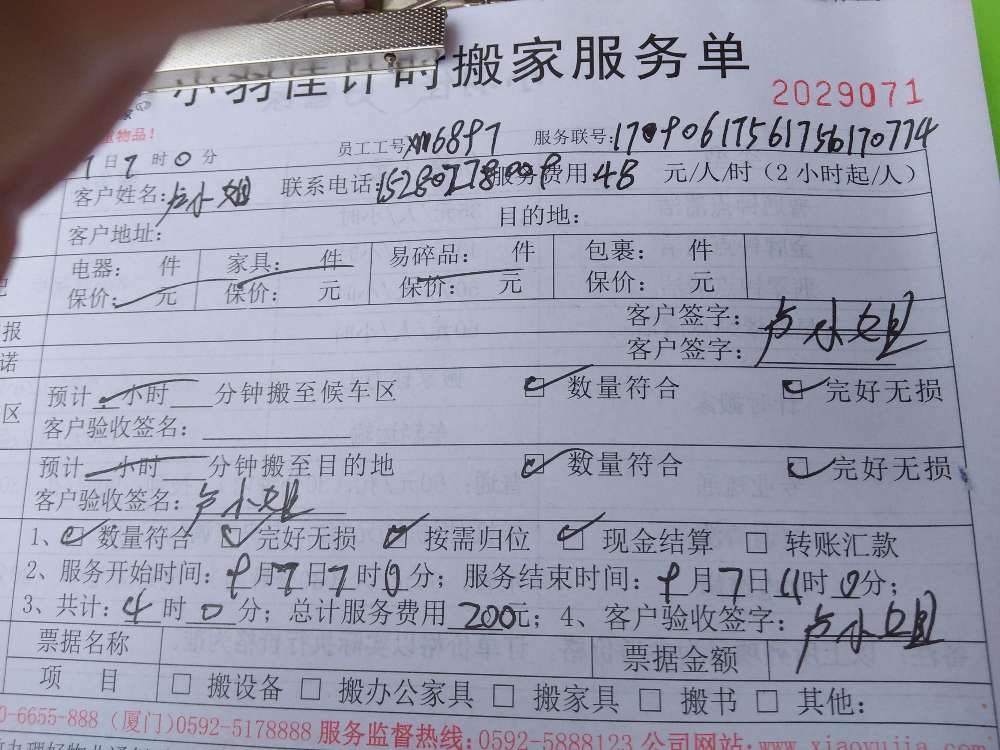 小羽佳计时搬家服务单
2029071
物品！
7日7时0分 员工工号 服务联号：
客户姓名：卢小姐 联系电话： 服务费用 48 元/人/时（2小时起/人）
客户地址： 目的地：
电器： 件 家具： 件 易碎品： 件 包裹： 件
保价： 元 保价： 元 保价： 元 保价： 元
报 客户签字：卢小姐
诺 客户签字：
预计 小时 分钟搬至候车区 ☑ 数量符合 ☑ 完好无损
区 客户验收签名：
预计 小时 分钟搬至目的地 ☑ 数量符合 ☑ 完好无损
客户验收签名：卢小姐
1、☑ 数量符合 ☑ 完好无损 ☑ 按需归位 ☑ 现金结算 □ 转账汇款
2、服务开始时间：9月7日7时0分；服务结束时间：9月7日11时0分；
3、共计：4时0分；总计服务费用200元；4、客户验收签字：卢小姐
票据名称 票据金额
项目 □ 搬设备 □ 搬办公家具 □ 搬家具 □ 搬书 □ 其他：
0-6655-888 (厦门)0592-5178888 服务监督热线：0592-5888123 公司网站：